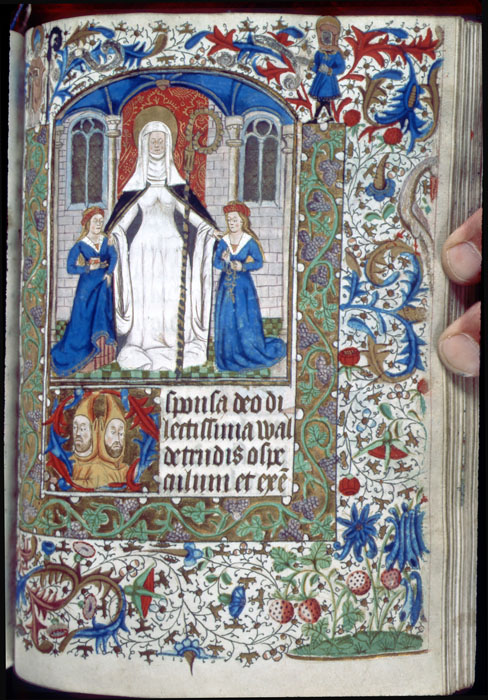 O sponsa deo di
lectissima wal
detrudis o spe
culum et exē